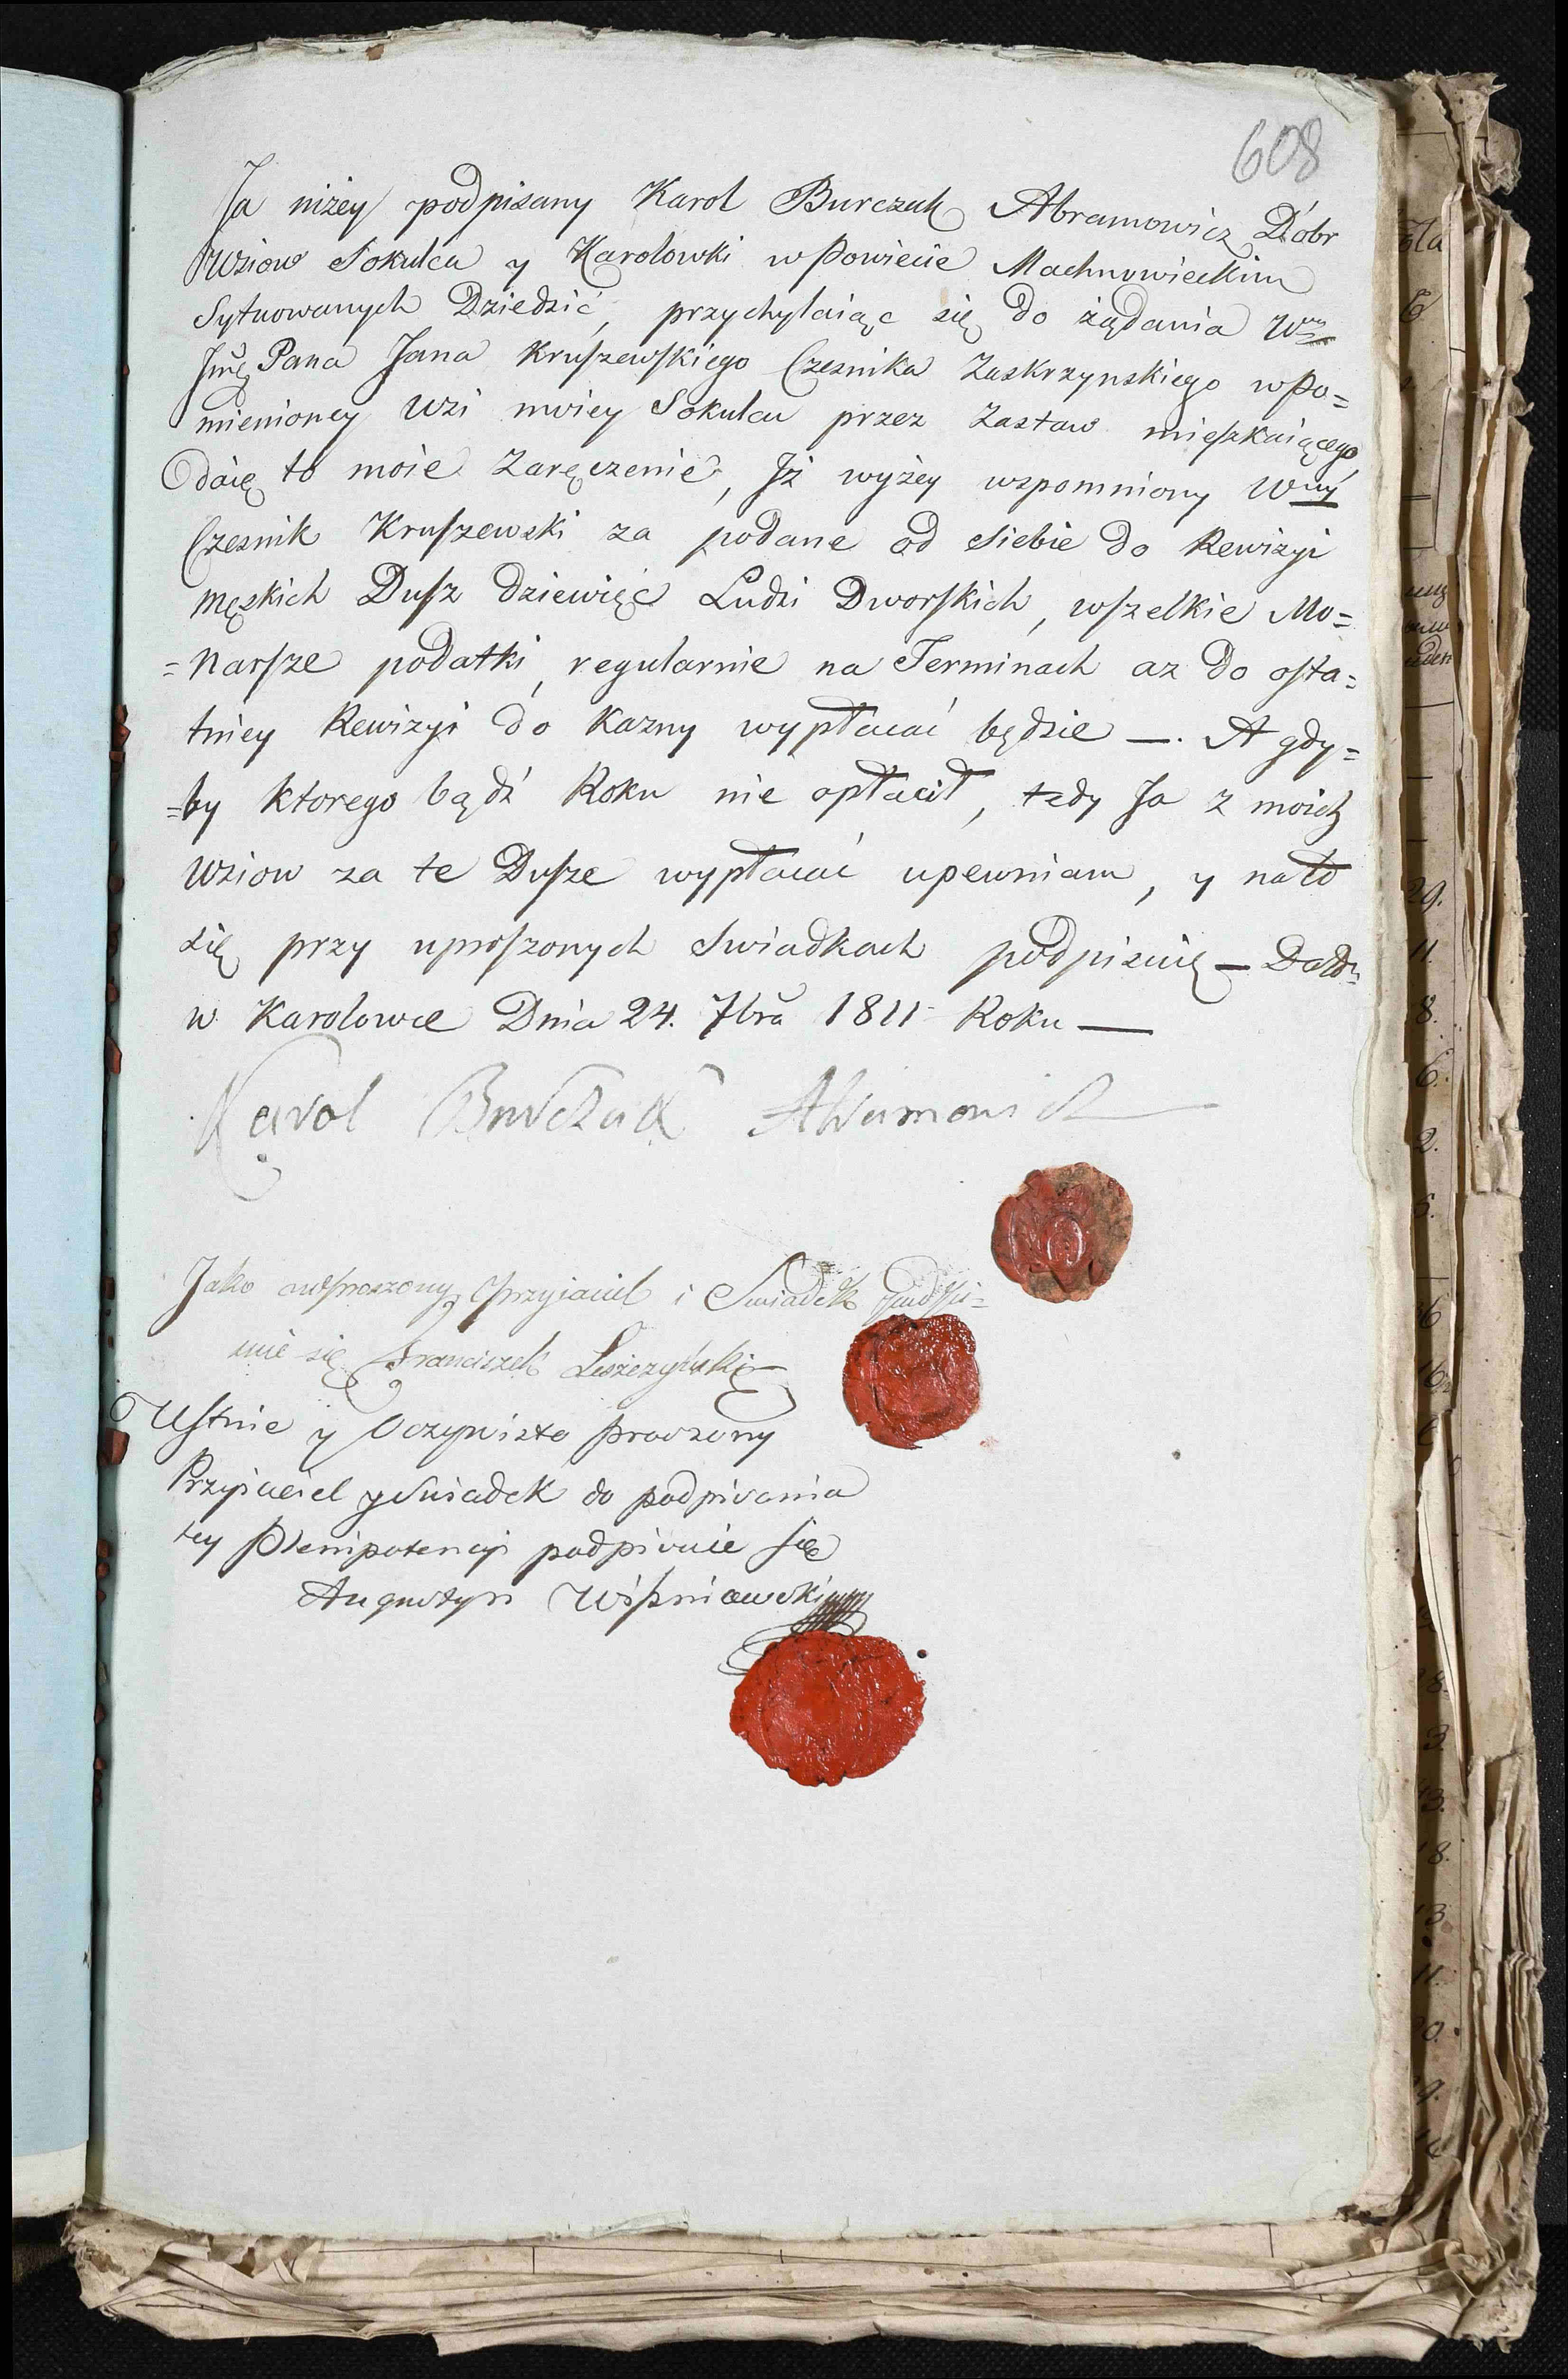 608
Ja niżey podpisany Karol Burczak Abramowicz Dóbr
Wsiow Sokulca y Karolowki w Powiecie Machnowieckim
Sytuowanych Dziedzić, przychylaiąc się do żądania W
Jmć Pana Jana Kruſzewſkiego Czesnika Zaskrzynskiego wpo=
mienioney Wsi moiey Sokulcu przez Zastaw mięſzkaiącego
daię to moie Zaręczenie, Jż wyżey wspomniony Wny
Czesnik Kruſzewski za podane od siebie do Rewizyi
męskich Duſz dziewięć Ludzi Dworſkich, wſzelkie Mo=
=narſze podatki, regularnie na Terminach az do oſta=
tniey Rewizyi do Kazny wypłacać będzie —. A gdy=
=by ktorego bądź Roku nie opłacił, tedy Ja z moich
Wsiow za te Duſze wypłacać upewniam, y na to
się przy uproſzonych Swiadkach podpisuię — Datt
w Karolowce Dnia 24. 7bra 1811 Roku —
Karol Burczak Abramowicz
Jako uproszony Przyiaciel i Swiadek podpi=
suie się Franciszek Leszczyński
Uſtnie y Oczywisto proszony
Przyiaciel y Swiadek do podpisania
tey Plenipotencyi podpisuie ſię
Augustyn Wiſzniewski